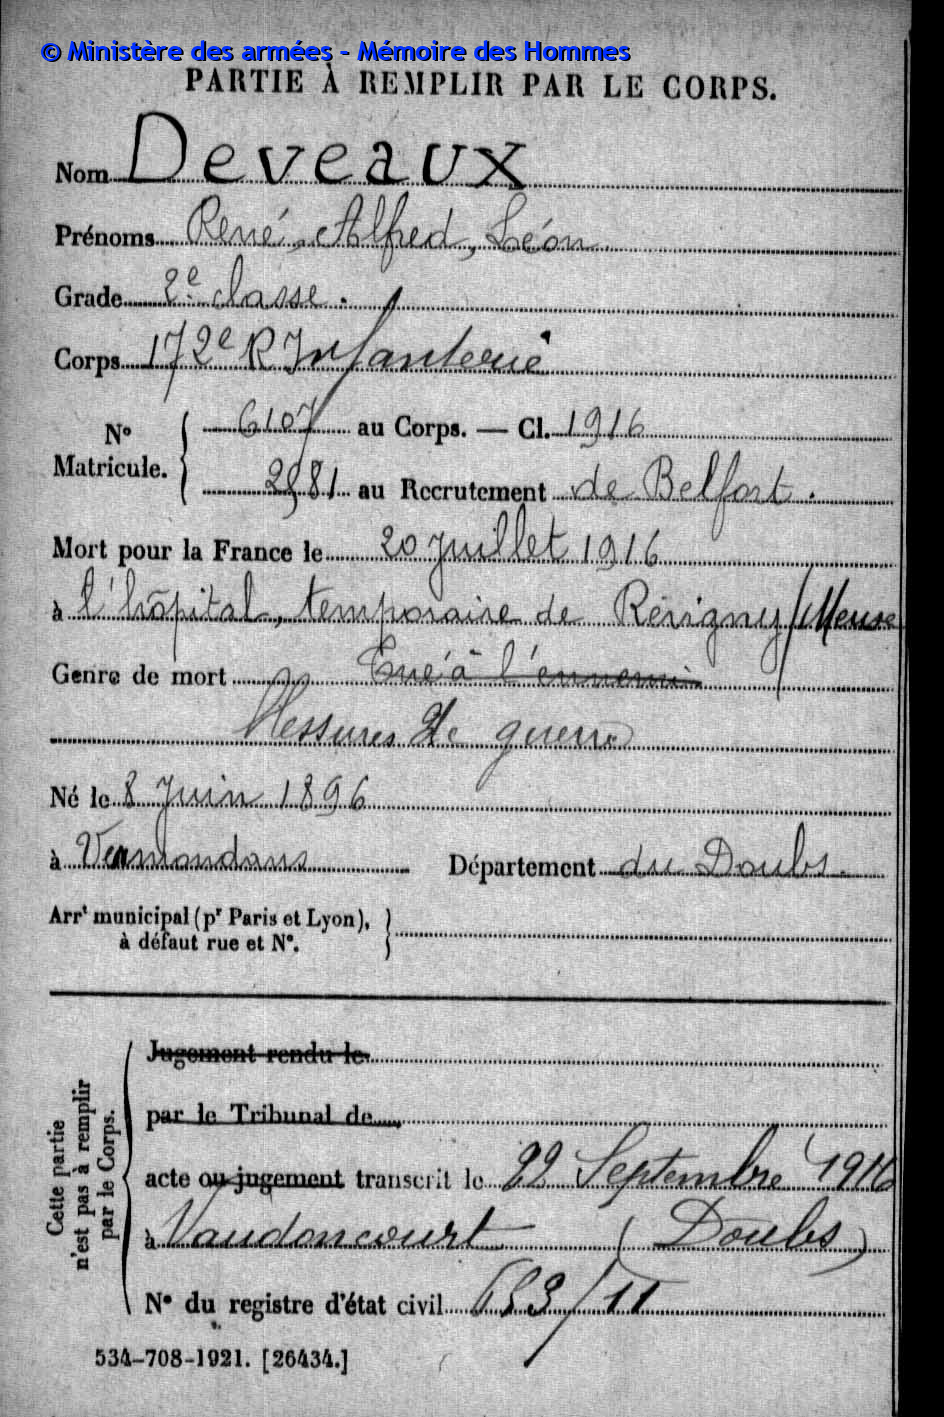 © Ministère des armées - Mémoire des Hommes
PARTIE À REMPLIR PAR LE CORPS.
Nom Deveaux
Prénoms René, Alfred, Léon
Grade 2e classe.
Corps 172e R Infanterie
No Matricule. 6107 au Corps. — Cl. 1916
2981 au Recrutement de Belfort.
Mort pour la France le 20 juillet 1916
à l'hôpital, temporaire de Révigny / Meuse
Genre de mort Tué à l'ennemi
Blessures de guerre
Né le 8 Juin 1896
à Vermondans Département du Doubs.
Arrt municipal (pr Paris et Lyon),
à défaut rue et No.
Cette partie
n'est pas à remplir
par le Corps.
Jugement rendu le
par le Tribunal de
acte ou jugement transcrit le 22 Septembre 1916
à Vaudoncourt (Doubs)
No du registre d'état civil 683/11
534-708-1921. [26434.]